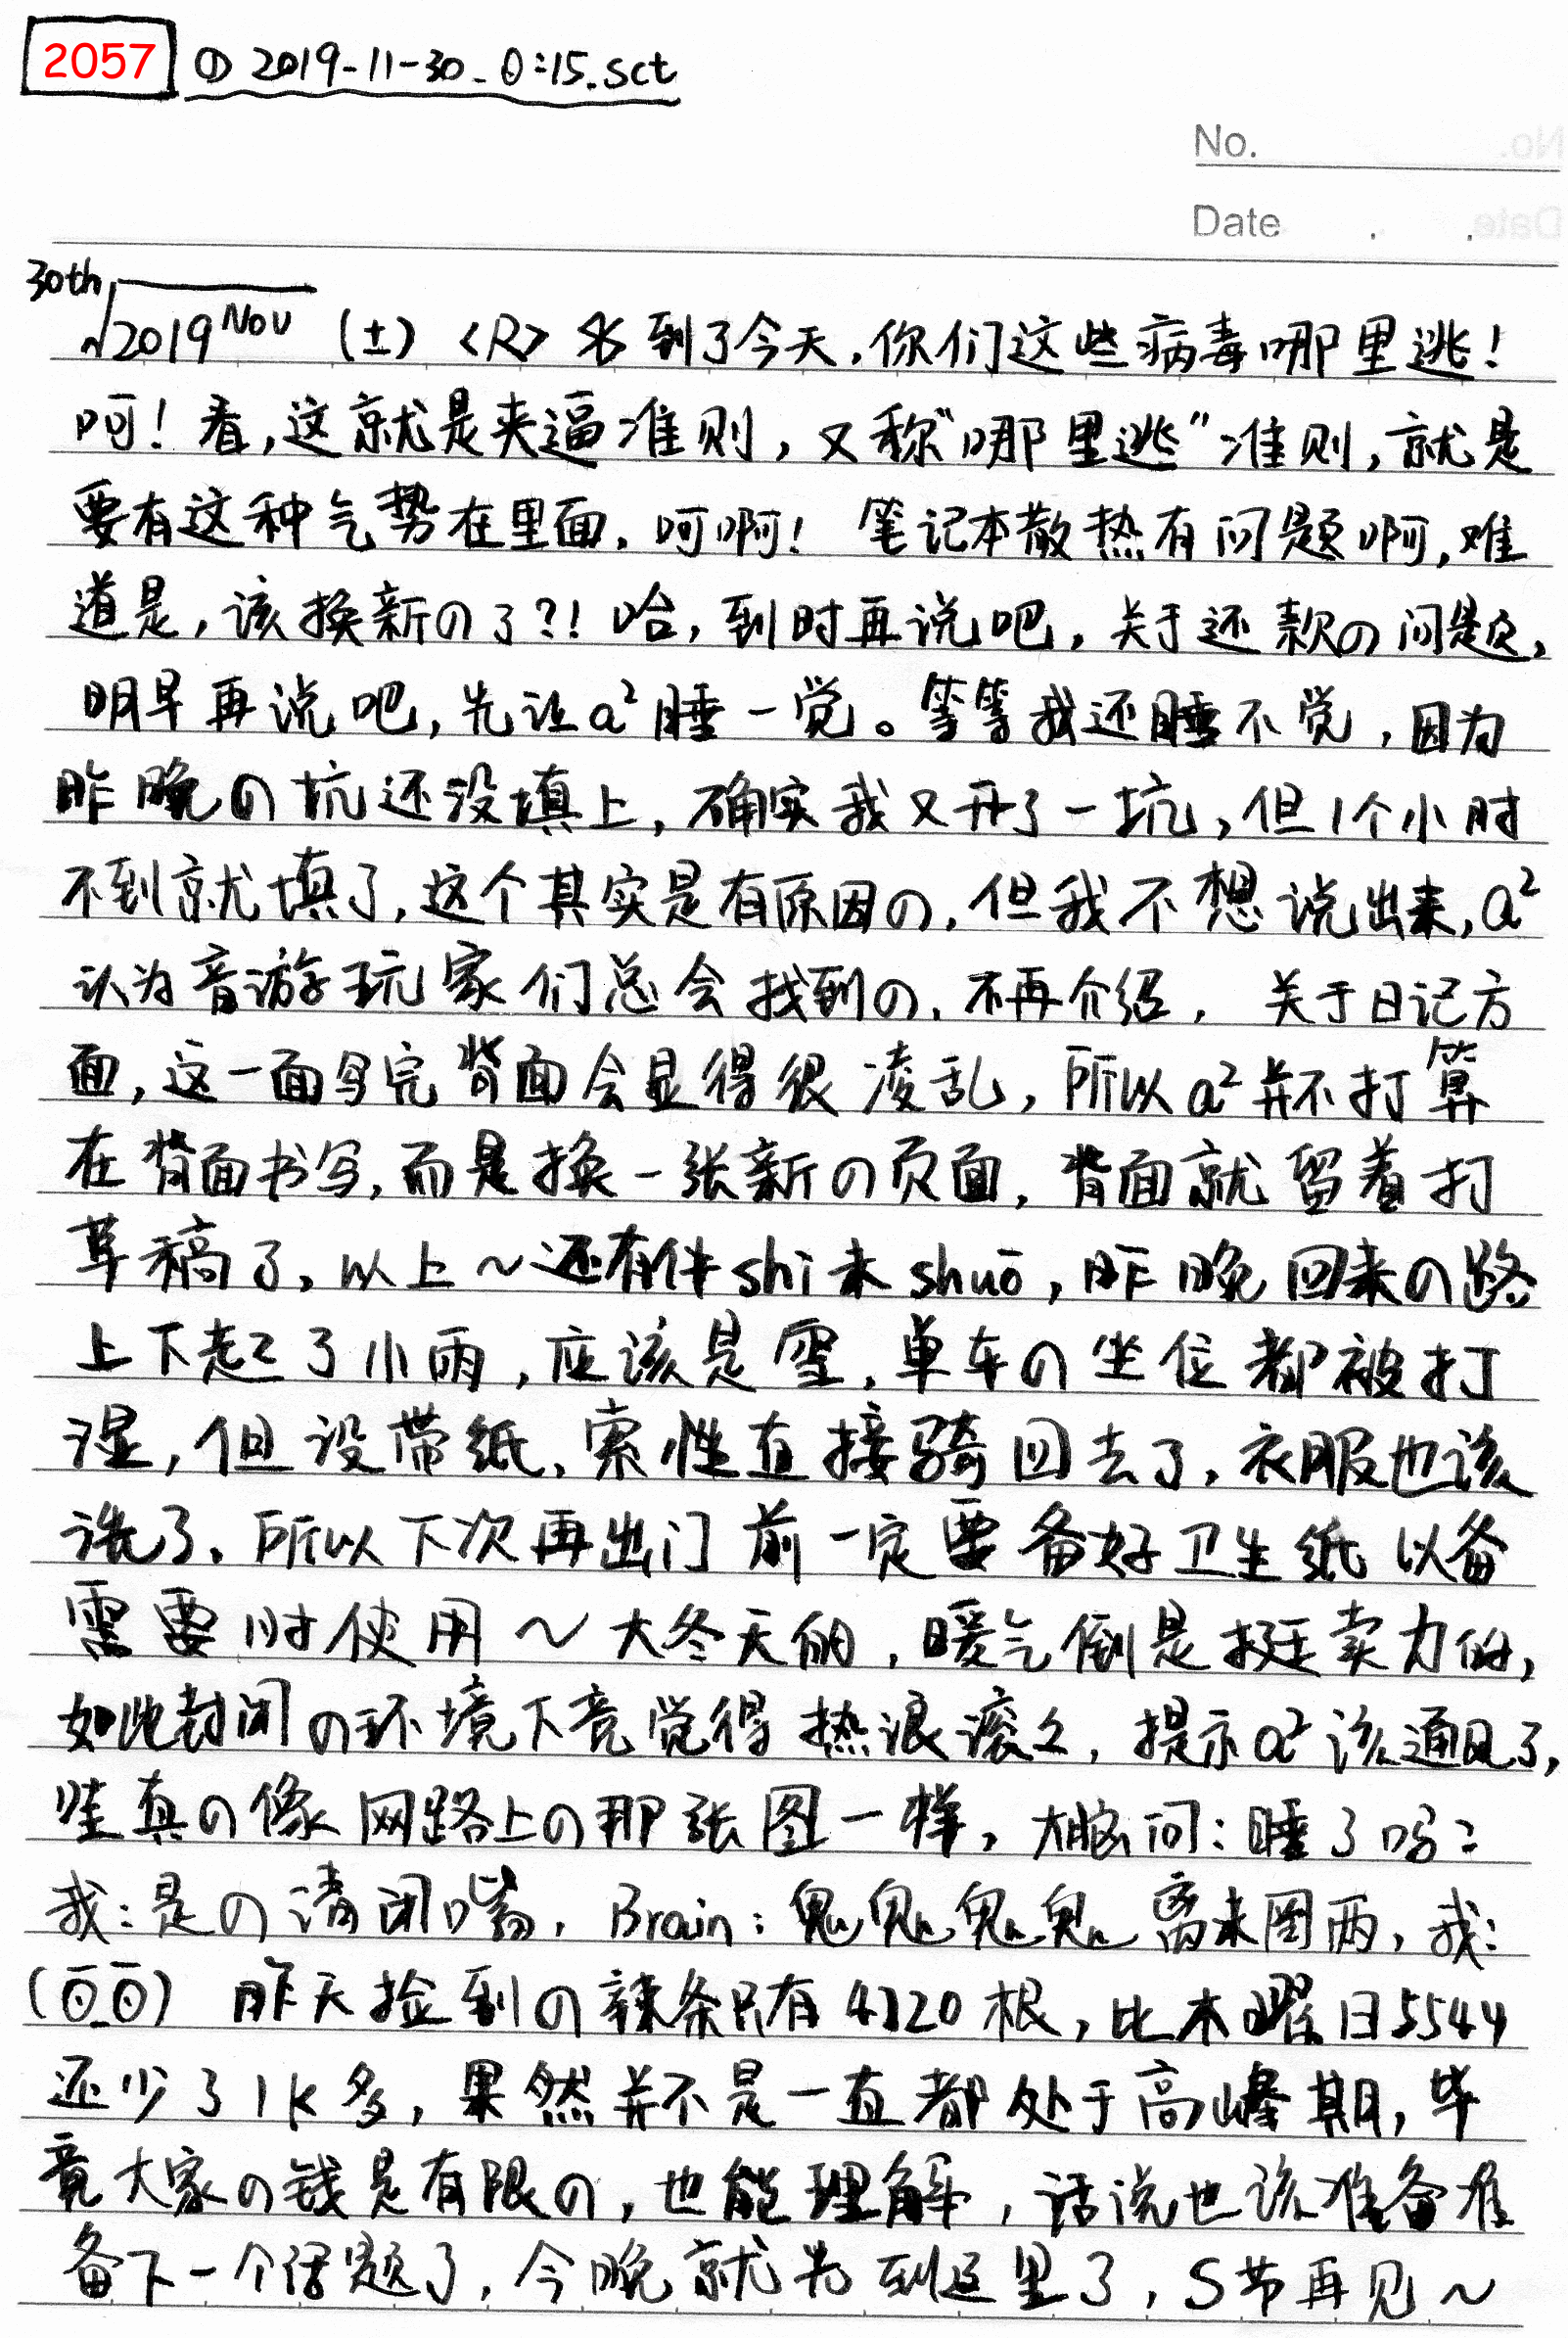 2057 ① 2019-11-30_0:15.sct
No.
Date . .
30th√2019^Nov (±) <R> 到了今天,你们这些病毒哪里逃!
呵!看,这就是夹逼准则,又称“哪里逃”准则,就是
要有这种气势在里面,呵啊! 笔记本散热有问题啊,难
道是,该换新の了?! 哈,到时再说吧,关于还款の问题,
明早再说吧,先让a²睡一觉。等等我还睡不觉,因为
昨晚の坑还没填上,确实我又开了一坑,但1个小时
不到就填了,这个其实是有原因の,但我不想说出来,a²
认为音游玩家们总会找到の,不再介绍, 关于日记方
面,这一面写完背面会显得很凌乱,所以a²并不打算
在背面书写,而是换一张新の页面,背面就留着打
草稿了,以上~还有件shì未shuō,昨晚回来の路
上下起了小雨,应该是雪,单车の坐位都被打
湿,但没带纸,索性直接骑回去了,衣服也该
洗了,所以下次再出门前一定要备好卫生纸以备
需要时使用~大冬天的,暖气倒是挺卖力的,
如此封闭の环境下竟觉得热浪滚々,提示a²该通风了,
哇真の像网路上の那张图一样,大脑问:睡了吗?
我:是の请闭嘴,Brain:鬼鬼鬼鬼离未罔两,我:
(ō_ō) 昨天捡到の辣条只有4320根,比木曜日5544
还少了1k多,果然并不是一直都处于高峰期,毕
竟大家の钱是有限の,也能理解,话说也该准备准
备下一个话题了,今晚就为到这里了,S节再见~